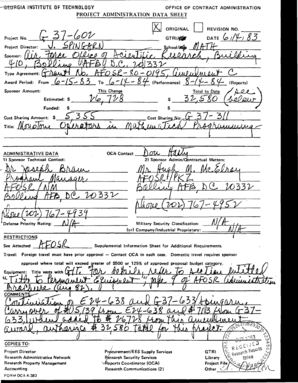 GEORGIA INSTITUTE OF TECHNOLOGY OFFICE OF CONTRACT ADMINISTRATION
PROJECT ADMINISTRATION DATA SHEET
X ORIGINAL REVISION NO.
Project No. G-37-602 DATE 6/14/83
Project Director: J. SPINGARN School MATH
Sponsor: Air Force Office of Scientific Research, Building
410, Bolling AFB, DC 20332
Type Agreement: Grant No. AFOSR-80-0195, Amendment C
Award Period: From 6-15-83 To 6-14-84 (Performance) 8-14-84 (Reports)
Sponsor Amount: This Change Total to Date (see
Estimated: $ 26,728 $ 32,580 below
Funded: $ $
Cost Sharing Amount: $ 5,355 Cost Sharing No: G-37-311
Title: Monotone Operators in Mathematical Programming
ADMINISTRATIVE DATA OCA Contact Don Hasty
1) Sponsor Technical Contact: 2) Sponsor Admin/Contractual Matters:
Dr. Joseph Bram Mr. Hugh M. McElroy
Program Manager AFOSR/PKZ
AFOSR/NM Bolling AFB, DC 20332
Bolling AFB, DC 20332
phone (202) 767-4952
phone (202) 767-4939
Defense Priority Rating: N/A Military Security Classification: N/A
(or) Company/Industrial Proprietary: N/A
RESTRICTIONS
See Attached AFOSR Supplemental Information Sheet for Additional Requirements.
Travel: Foreign travel must have prior approval – Contact OCA in each case. Domestic travel requires sponsor
approval where total will exceed greater of $500 or 125% of approved proposal budget category.
Equipment: Title vests with GIT. For details, refer to section entitled
"Title to Permanent Equipment", page 9 of AFOSR Administration
COMMENTS:
Continuation of E24-638 and G-37-633
COPIES TO:
Project Director
Research Administrative Network
Research Property Management
Accounting
Procurement/EES Supply Services
Research Security Services
Reports Coordinator (OCA)
Research Communications (2)
GTRI
Library
Project File
Other
FORM OCA 4:383